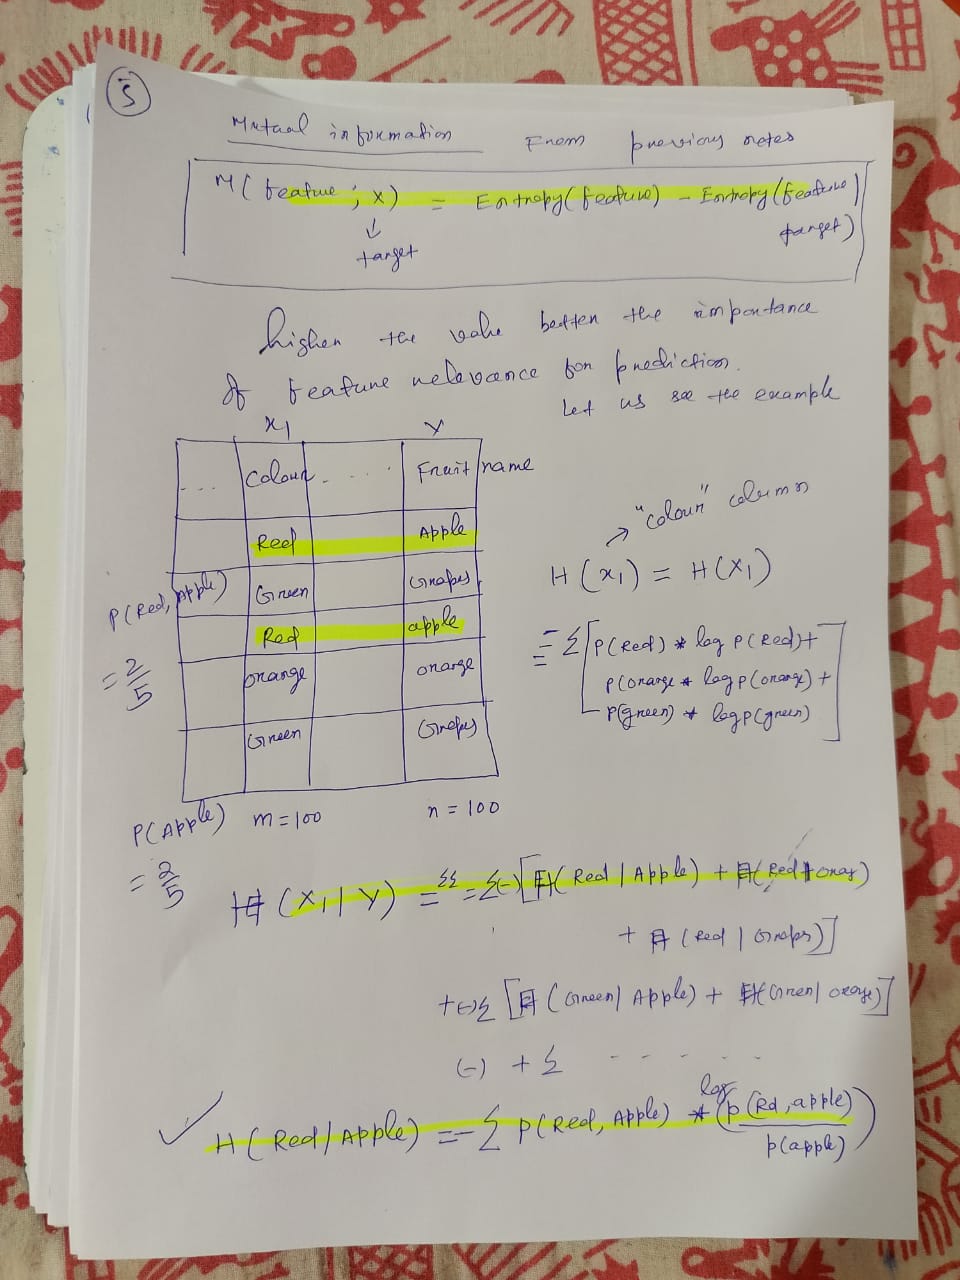 5
Mutual information From previous notes
M(feature; x) = Entropy(feature) - Entropy(feature|
target)
↓
target
higher the value better the importance
of feature relevance for prediction.
Let us see the example
x1 Y
... Colour ..... Fruit name
Red Apple
Green Grapes
Red apple
orange orange
Green Grapes
P(Red, Apple)
= 2/5
P(Apple)
= 2/5
m = 100 n = 100
"colour" column
H(x1) = H(X1)
= Σ[P(Red) * log P(Red) +
P(orange * log p(orange) +
P(green) * log p(green)]
H(X1|Y) = ΣΣ = Σ(-)[H(Red | Apple) + H(Red | orange)
+ H(Red | Grapes)]
+(-)Σ[H(Green | Apple) + H(Green | orange)]
(-) + Σ - - - - -
H(Red/Apple) = -Σ P(Red, Apple) * log (p(Rd, apple)/p(apple))